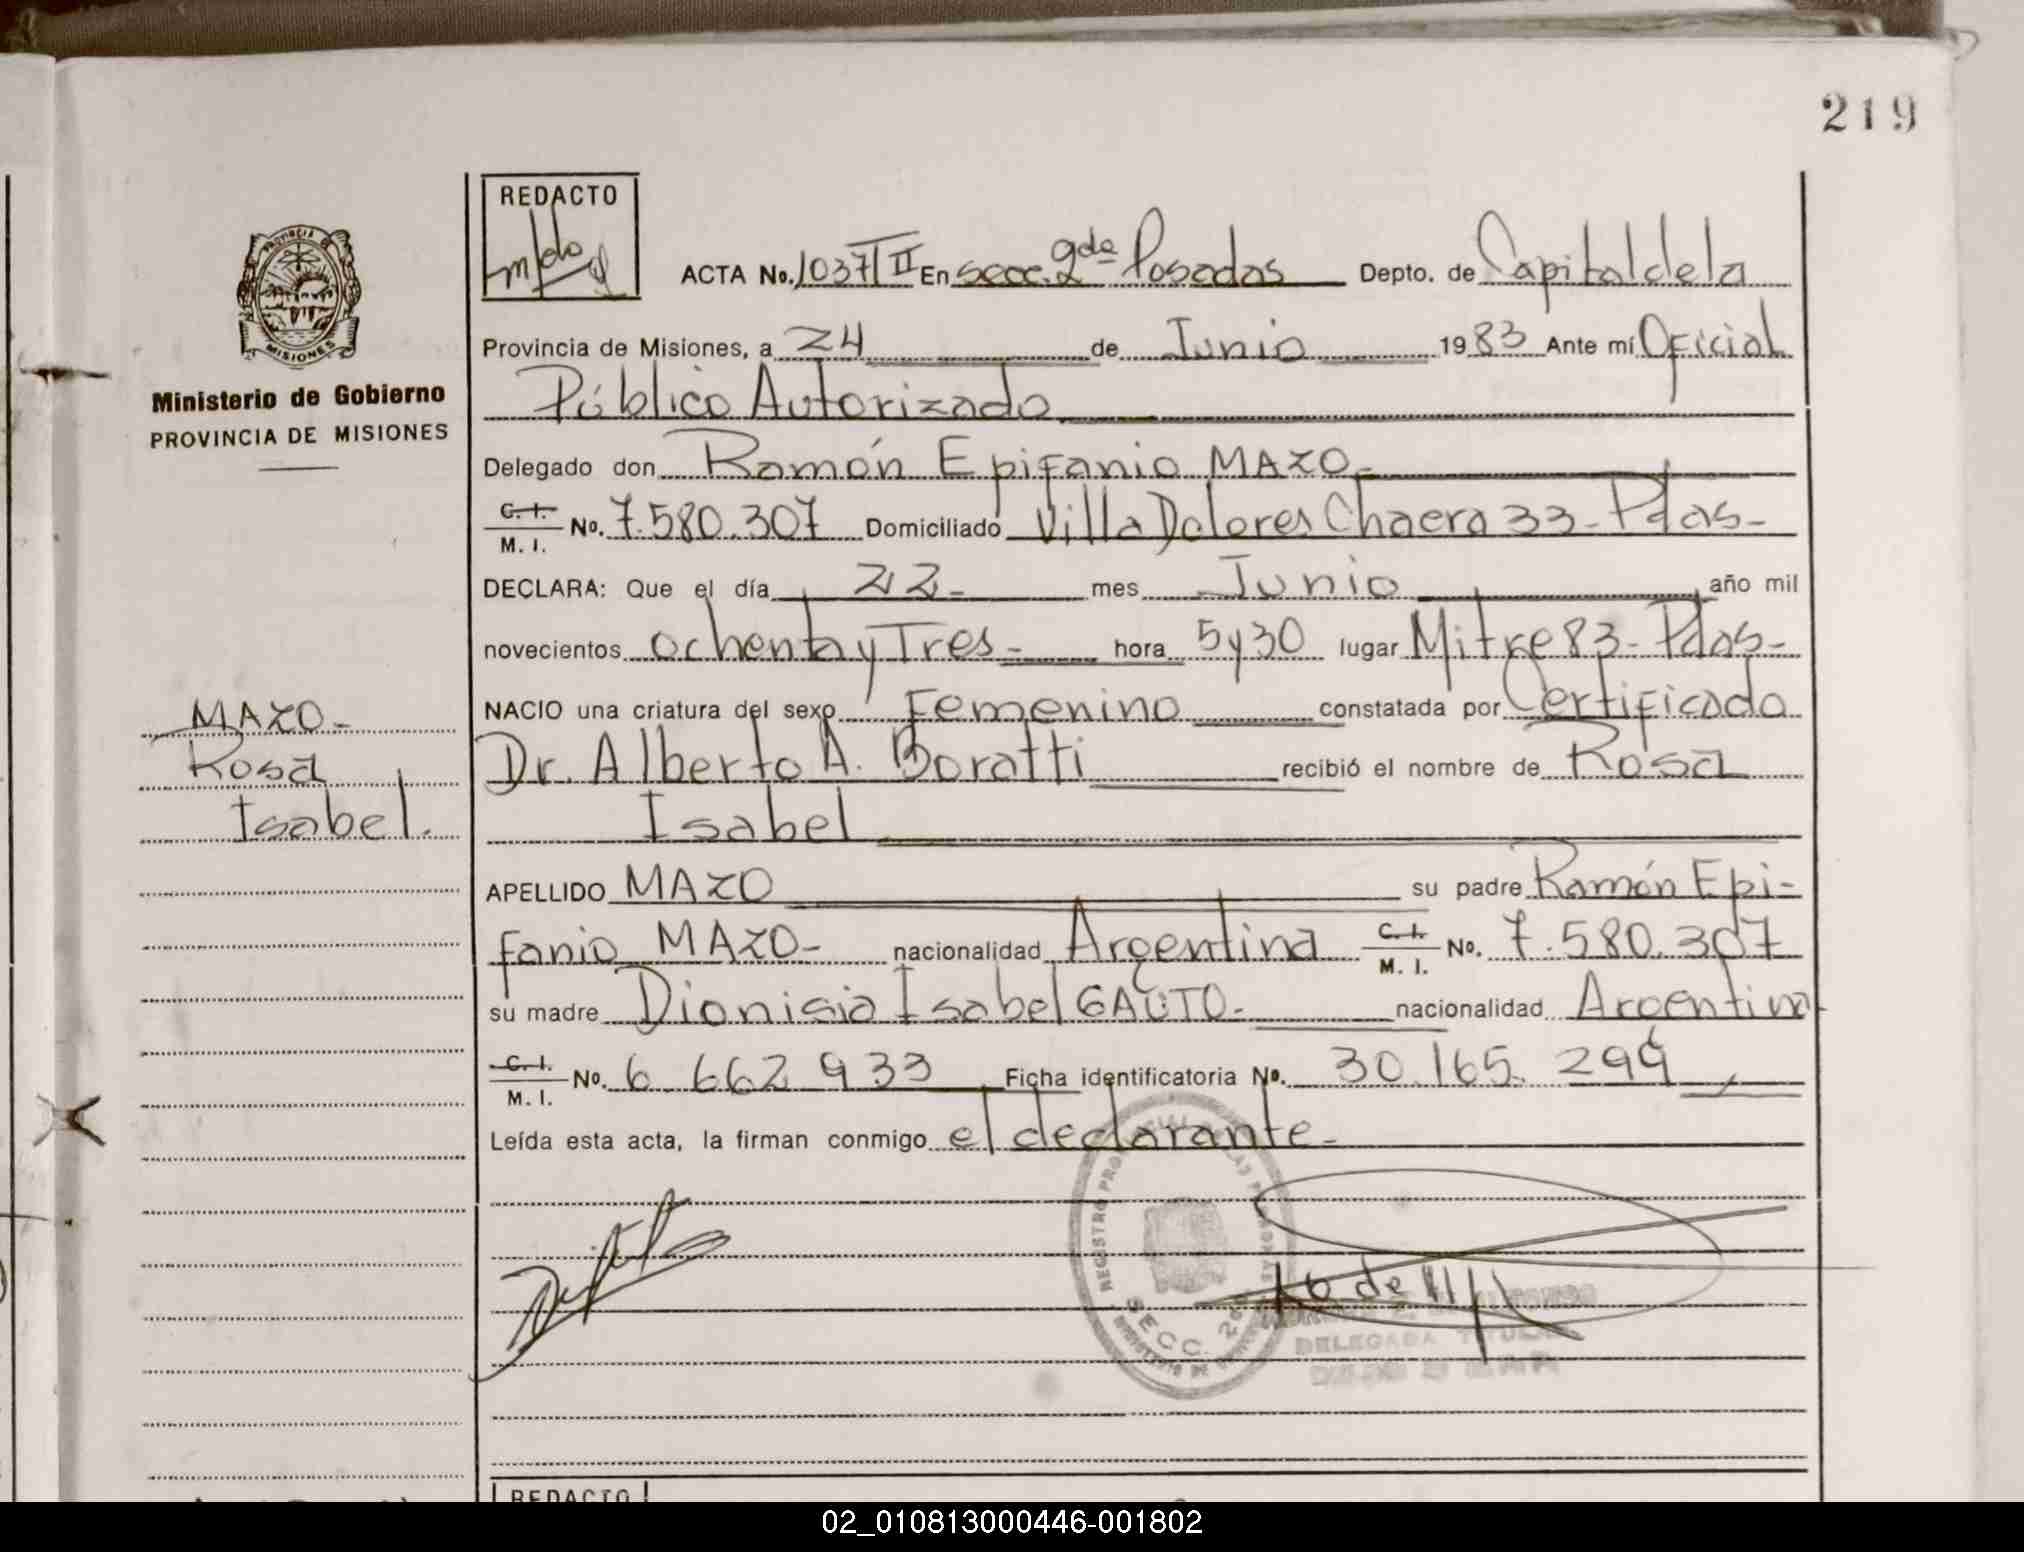 219
REDACTO
ACTA No. 1037 T II En secc. 2da Posadas Depto. de Capital de la
PROVINCIA DE
MISIONES
Provincia de Misiones, a 24 de Junio 1983 Ante mí Oficial
Ministerio de Gobierno
PROVINCIA DE MISIONES
Público Autorizado
Delegado don Ramón Epifanio MAZO-
C. I.
M. I. No. 7.580.307 Domiciliado Villa Dolores Chacra 33-Pdas-
DECLARA: Que el día 22- mes Junio año mil
novecientos ochenta y Tres- hora 5 y 30 lugar Mitre 83-Pdas-
MAZO-
Rosa
Isabel.
NACIO una criatura del sexo Femenino constatada por Certificado
Dr. Alberto A. Boratti recibió el nombre de Rosa
Isabel
APELLIDO MAZO su padre Ramón Epi-
fanio MAZO- nacionalidad Argentina C. I.
M. I. No. 7.580.307
su madre Dionisia Isabel GAUTO- nacionalidad Argentina
C. I.
M. I. No. 6.662.933 Ficha identificatoria No. 30.165.299
Leída esta acta, la firman conmigo el declarante-
REGISTRO
SECC. 2da
DELEGADA TITULAR
REDACTO
02_010813000446-001802